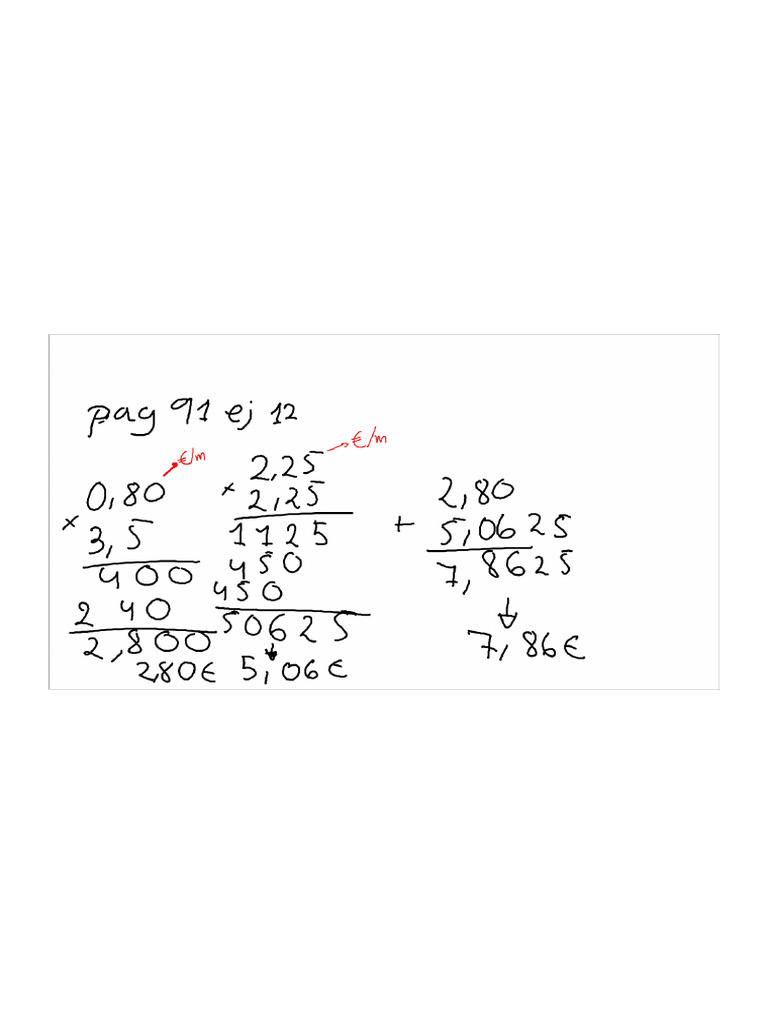 pag 91 ej 12
0,80 €/m
× 3,5
400
2 40
2,800
2,80€
2,25 €/m
× 2,25
1125
450
450
50625
5,06€
2,80
+ 5,0625
7,8625
7,86€